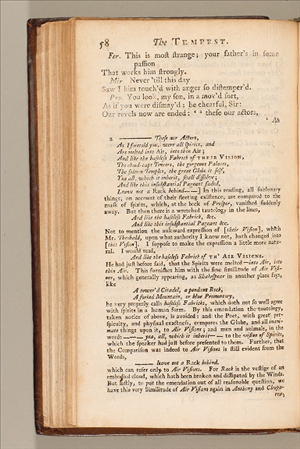 58 The TEMPEST.
Fer. This is most strange; your father's in some
passion
That works him strongly.
Mir. Never 'till this day
Saw I him touch'd with anger so distemper'd.
Pro. You look, my son, in a mov'd sort,
As if you were dismay'd; be chearful, Sir:
Our revels now are ended: these our actors,
As
These our Actors,
As I foretold you, were all Spirits, and
Are melted into Air, into thin Air;
And like the baseless Fabrick of THEIR VISION,
The cloud-capt Towers, the gorgeous Palaces,
The solemn Temples, the great Globe it self,
Yea all, which it inherit, shall dissolve;
And like this insubstantial Pageant faded,
Leave not a Rack behind—] In this reading, all sublunary
things, on account of their fleeting existence, are compared to the
mask of spirits, which, at the beck of Prosper, vanished suddenly
away. But then there is a wretched tautology in the lines,
And like the baseless Fabrick, &c.
And like this insubstantial Pageant &c.
Not to mention the aukward expression of [their Vision], which
Mr. Theobald, upon what authority I know not, hath changed into
[this Vision]. I suppose to make the expression a little more natu-
ral. I would read,
And like the baseless Fabrick of th' AIR VISIONS.
He had just before said, that the Spirits were melted into Air, into
thin Air. This furnishes him with the fine similitude of Air Visi-
ons, which generally appearing, as Shakespear in another place says,
like
A tower'd Citadel, a pendent Rock,
A forked Mountain, or blue Promontory,
he very properly calls baseless Fabricks, which doth not so well agree
with spirits in a human form. By this emendation the tautology,
taken notice of above, is avoided: and the Poet, with great per-
spicuity, and physical exactness, compares the Globe, and all inani-
mate things upon it, to Air Visions; and men and animals, in the
words — yea, all, which it inherit— to the actors or Spirits,
which the speaker had just before presented to them. Farther, that
the Comparison was indeed to Air Visions is still evident from the
Words,
leave not a Rack behind.
which can refer only to Air Visions. For Rack is the vestige of an
embodied cloud, which hath been broken and dissipated by the Winds.
But lastly, to put the emendation out of all reasonable question, we
have this very Similitude of Air Visions again in Anthony and Cleopa-